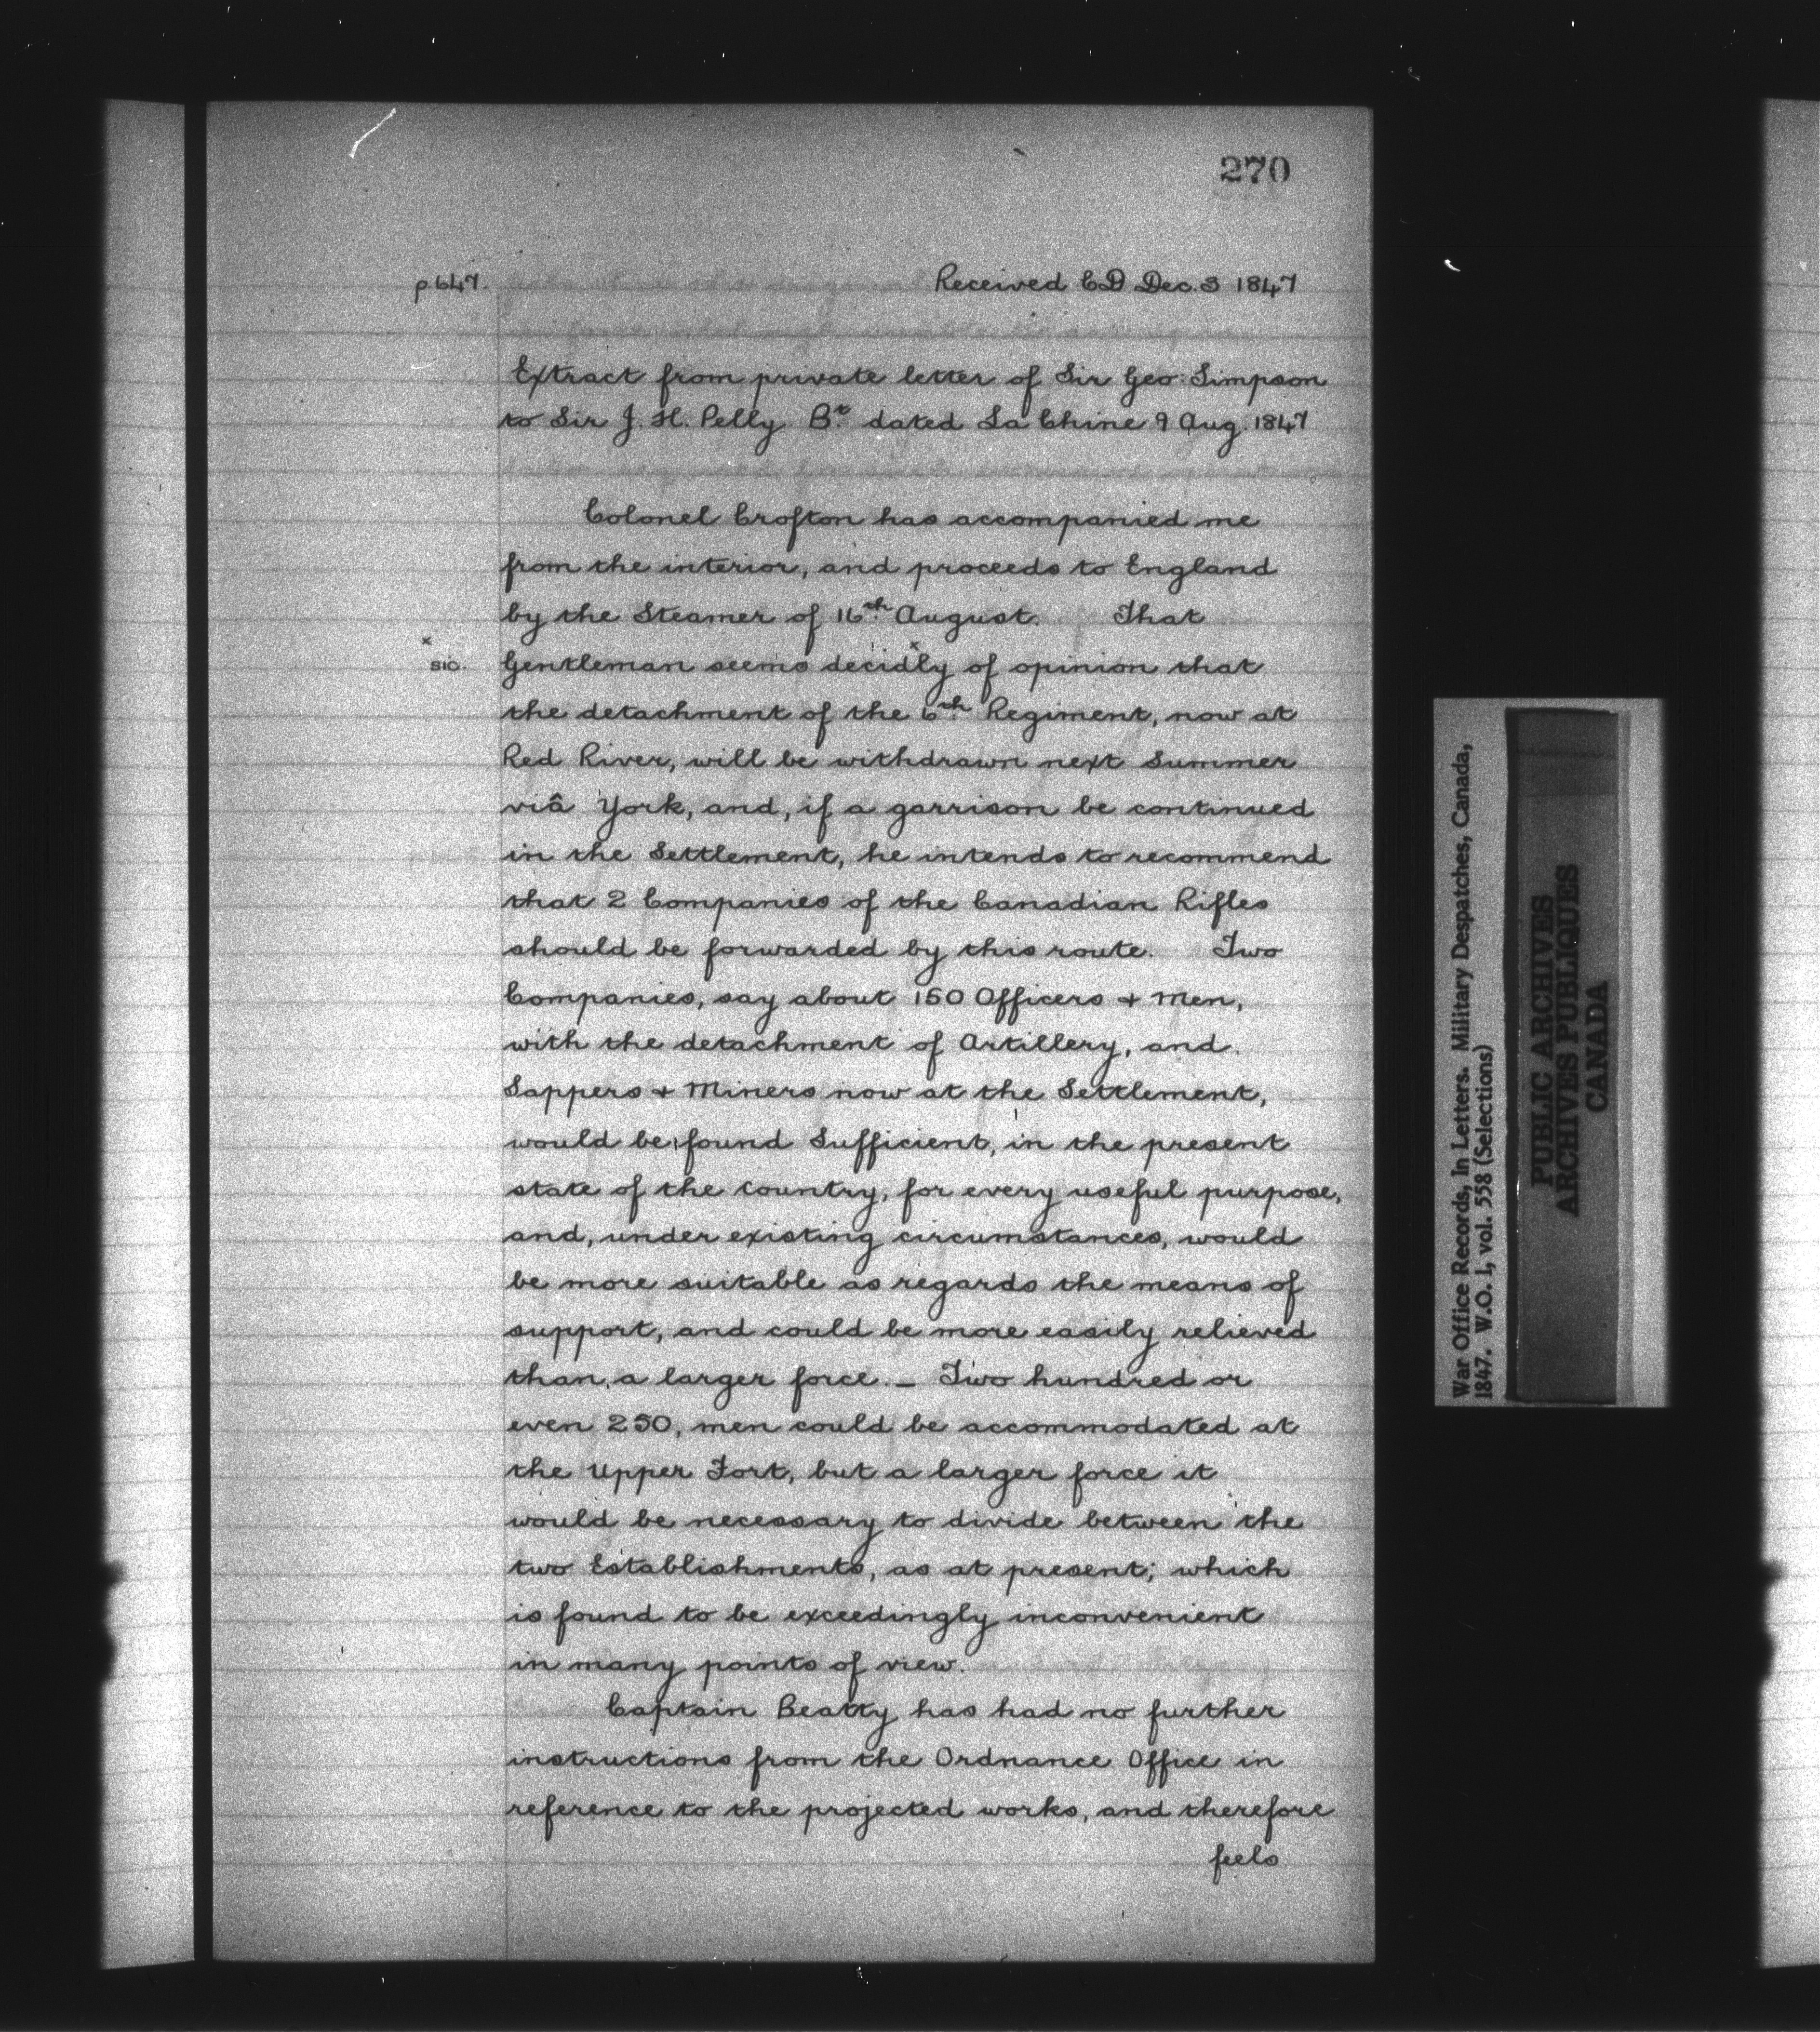 270
p 647. Received CD Dec. 3 1847
Extract from private letter of Sir Geo: Simpson
to Sir J. H. Pelly Bt dated La Chine 9 Aug. 1847
Colonel Crofton has accompanied me
from the interior, and proceeds to England
by the Steamer of 16th August. That
x
sic. Gentleman seems decidly x of opinion that
the detachment of the 6th Regiment, now at
Red River, will be withdrawn next Summer
viâ York, and, if a garrison be continued
in the Settlement, he intends to recommend
that 2 Companies of the Canadian Rifles
should be forwarded by this route. Two
Companies, say about 150 Officers + Men,
with the detachment of Artillery, and
Sappers + Miners now at the Settlement,
would be found Sufficient, in the present
state of the Country, for every useful purpose,
and, under existing circumstances, would
be more suitable as regards the means of
support, and could be more easily relieved
than a larger force. – Two hundred or
even 250, men could be accommodated at
the Upper Fort, but a larger force it
would be necessary to divide between the
two Establishments, as at present; which
is found to be exceedingly inconvenient
in many points of view.
Captain Beatty has had no further
instructions from the Ordnance Office in
reference to the projected works, and therefore
feels
War Office Records, In Letters. Military Despatches, Canada,
1847. W.O. 1, vol. 558 (Selections)
PUBLIC ARCHIVES
ARCHIVES PUBLIQUES
CANADA